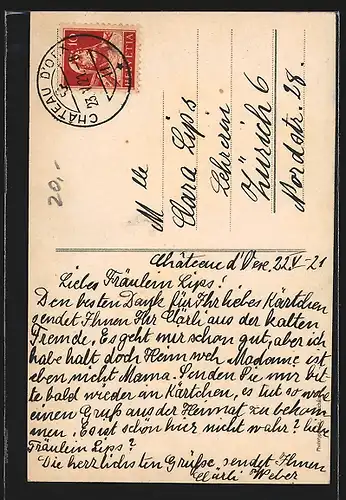 CHÂTEAU D'ŒX
10
HELVETIA
20,-
Mlle
Clara Lips
Lehrerin
Zürich 6
Nordstr. 28.
Château d'Oex, 22.V.21
Liebes Fräulein Lips!
Den besten Dank für Ihr liebes Kärtchen
sendet Ihnen Ihr Clärli aus der kalten
Fremde. Es geht mir schon gut, aber ich
habe halt doch Heimweh Madame ist
eben nicht Mama. Senden Sie mir bit-
te bald wieder ein Kärtchen, es tut so wohl
einen Gruß aus der Heimat zu bekom-
men. Es ist schön hier nicht wahr? liebe
Fräulein Lips?
Die herzlichsten Grüsse sendet Ihnen
Clärli Weber